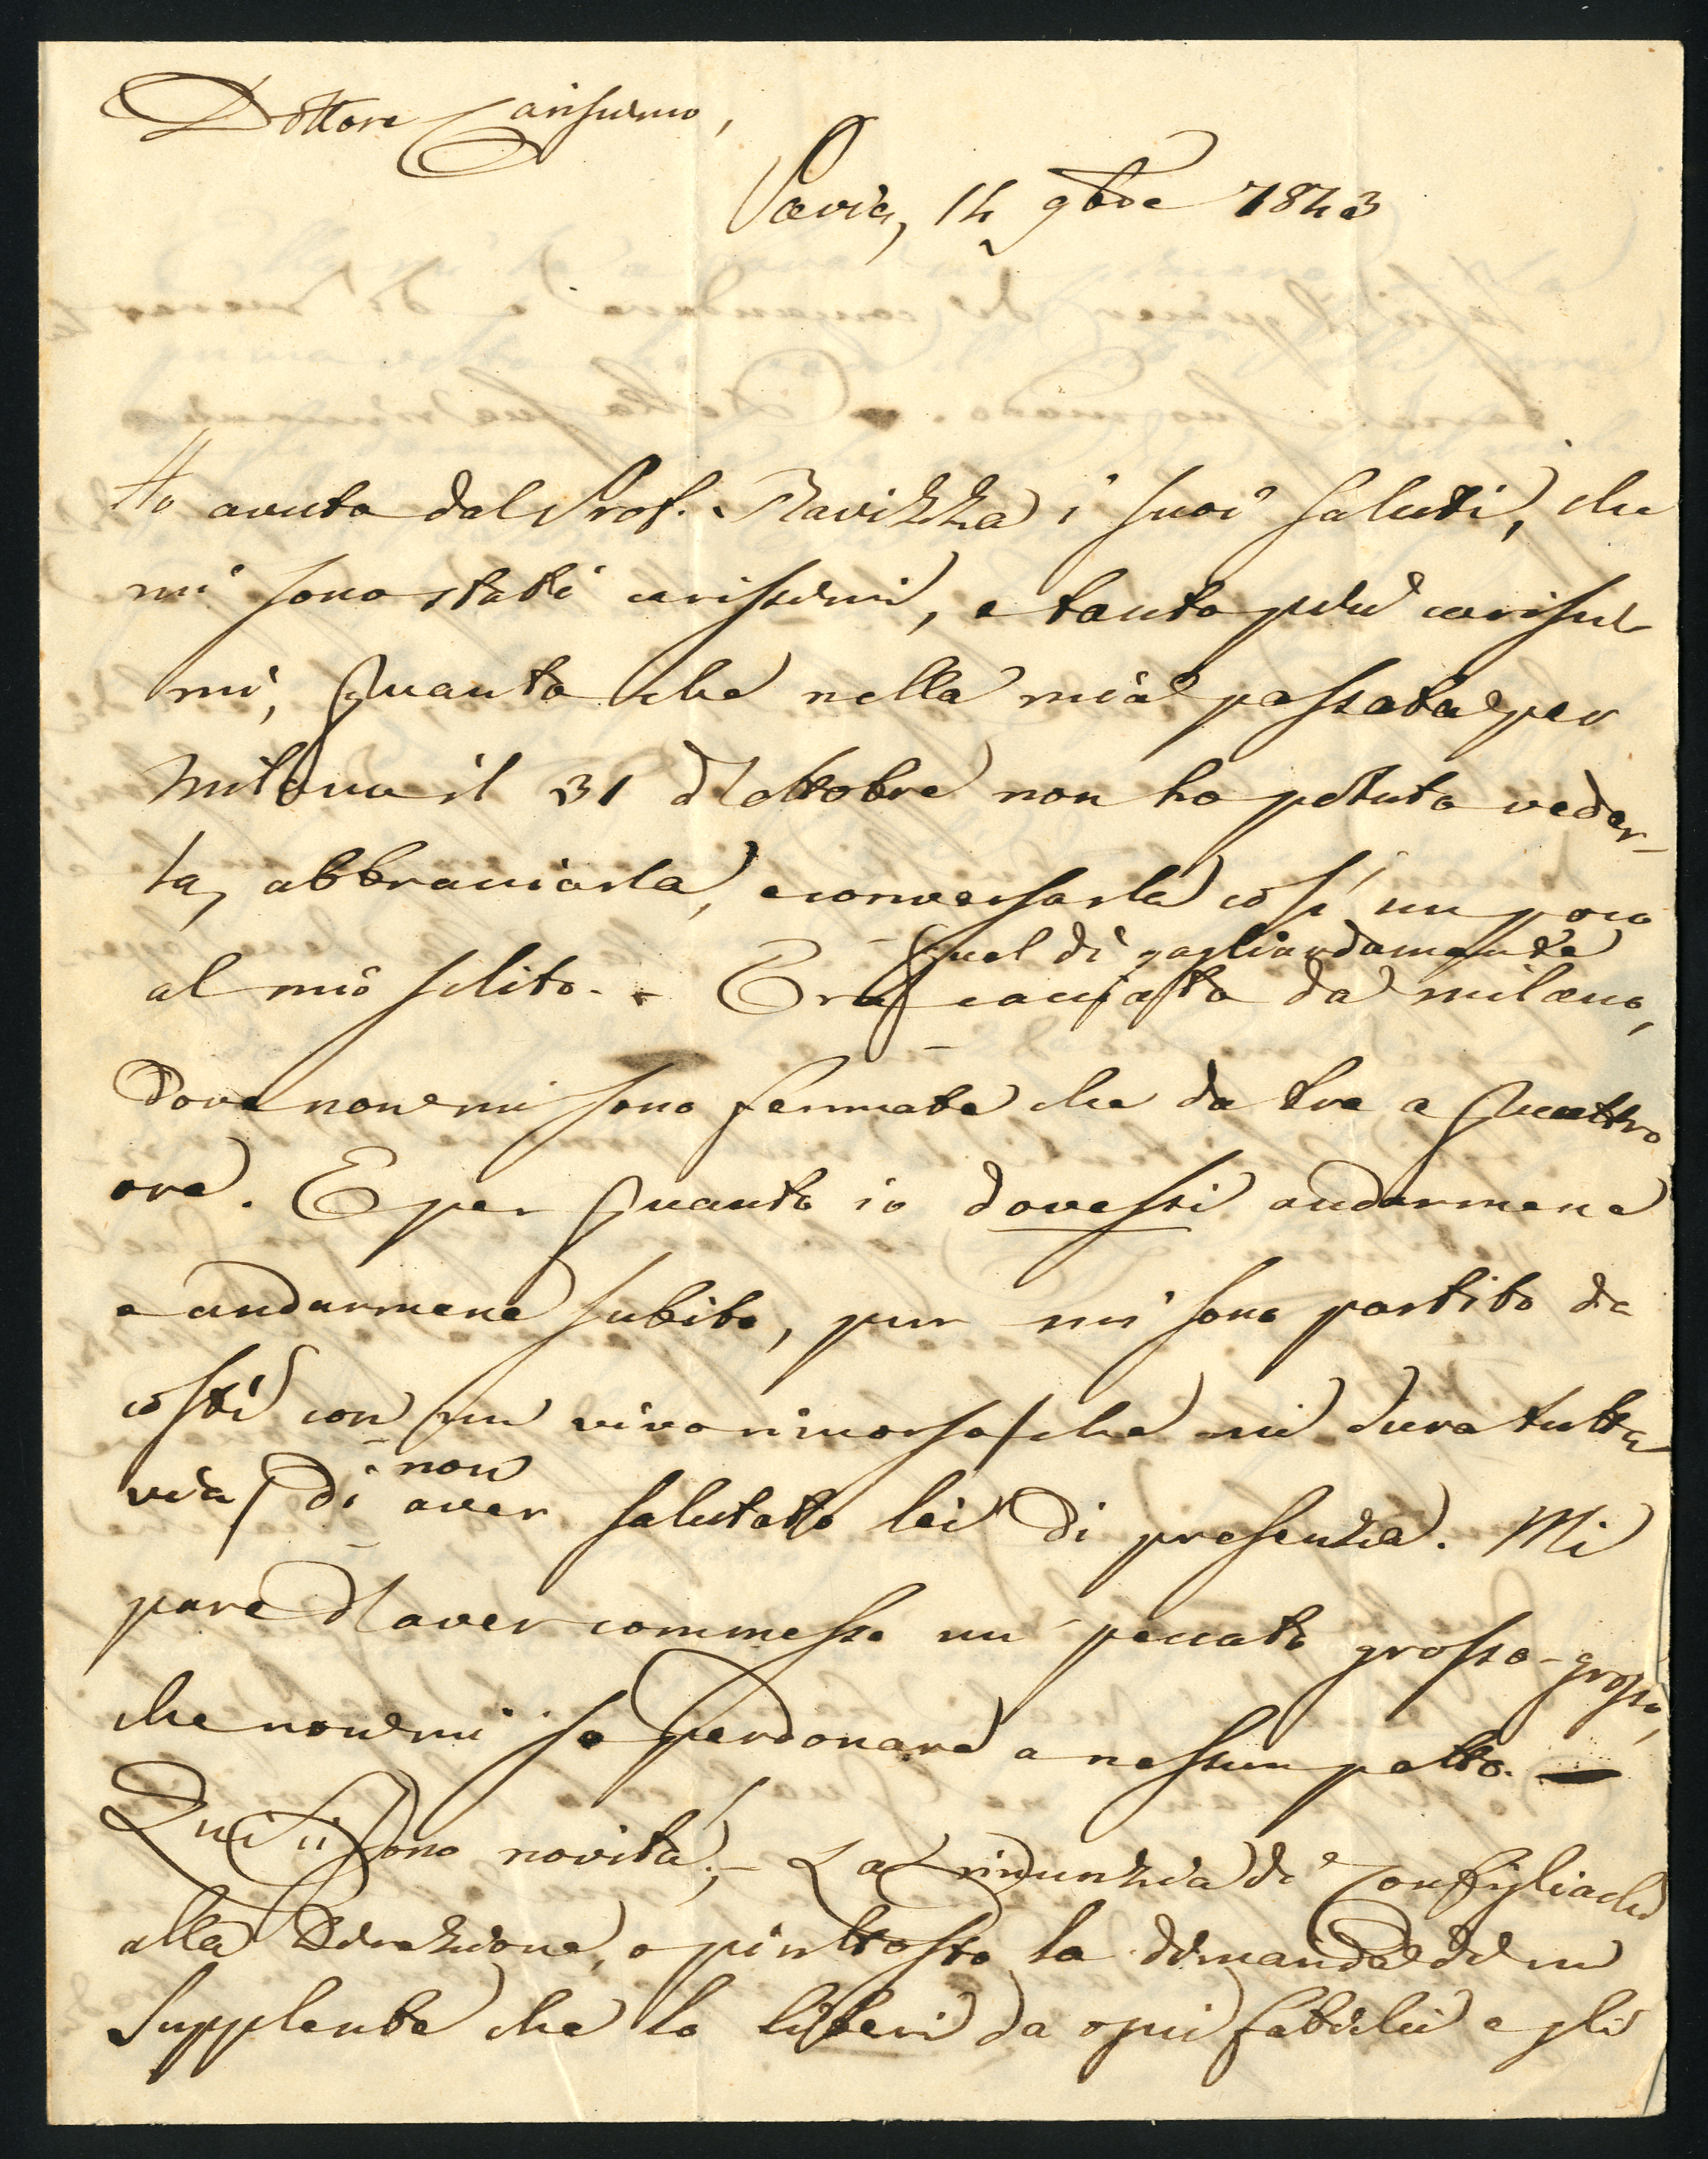 Dottore Carissimo,
Pavia, 14 9bre 1843
Ho avuto dal Prof. Ravizza i suoi saluti, che
mi sono stati carissimi, e tanto più carissi-
mi, quanto che nella mia passata per
Milano il 31 d'ottobre non ho potuto veder-
la, abbracciarla, e conversarla così un poco
al mio solito. - Era quel dì gagliardamente cacciato da Milano,
dove non mi sono fermato che da tre a quattro
ore. E per quanto io dovessi andarmene
e andarmene subito, pur mi sono partito da
costì con un vivo rimorso (che mi dura tutta
via) di non aver salutato lei di presenza. Mi
pare d'aver commesso un peccato grosso-grosso,
che non mi so perdonare a nessun patto. —
Qui ci sono novità; - La rinunzia di Configliachi
alla Direzione, o piuttosto la dimanda di un
Supplente che lo liberi da ogni fatica e gli